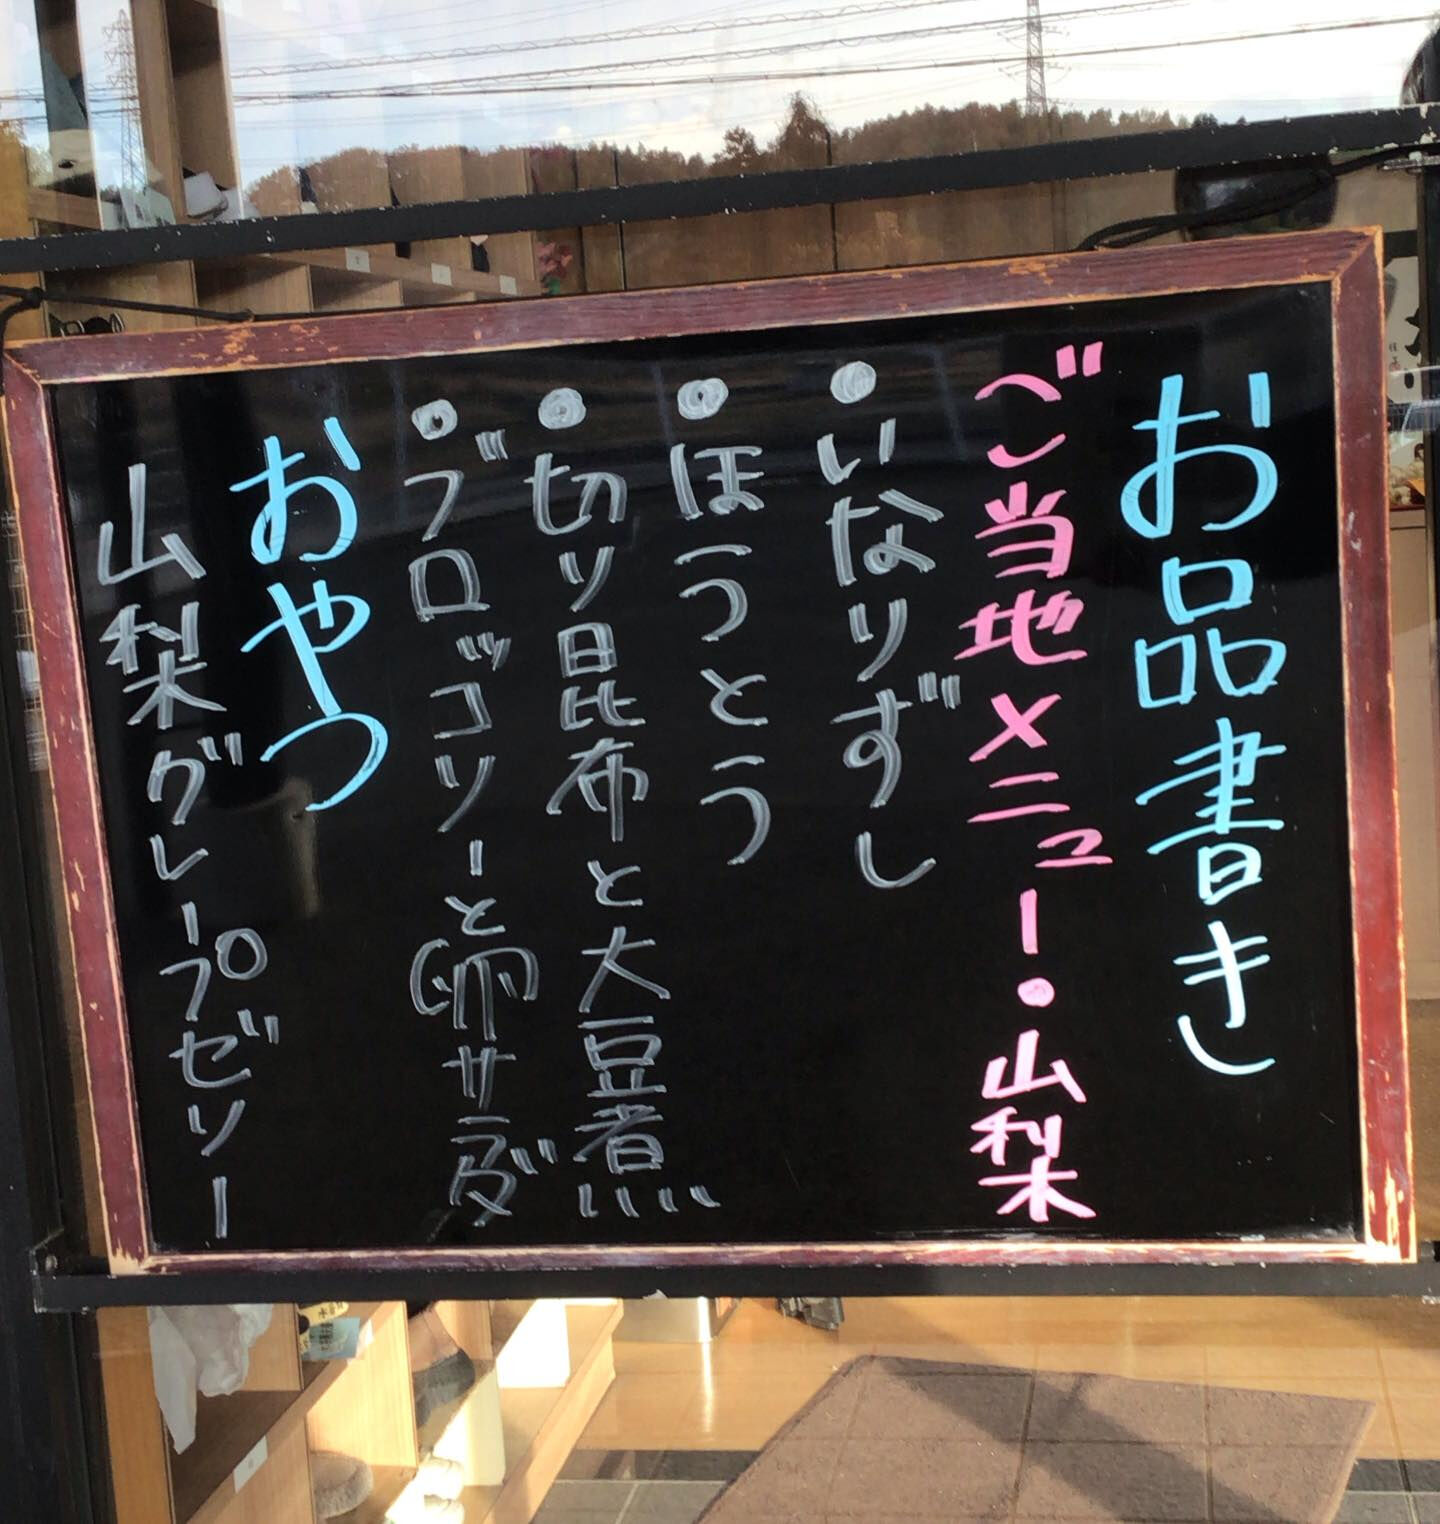 お品書き
ご当地メニュー・山梨
・いなりずし
・ほうとう
・切り昆布と大豆煮
・ブロッコリーと卵サラダ
おやつ
山梨グレープゼリー